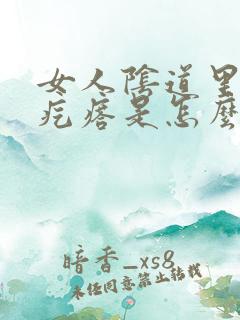 女人陰道里
疙瘩是怎麼
暗香_xs8
未经同意禁止转载